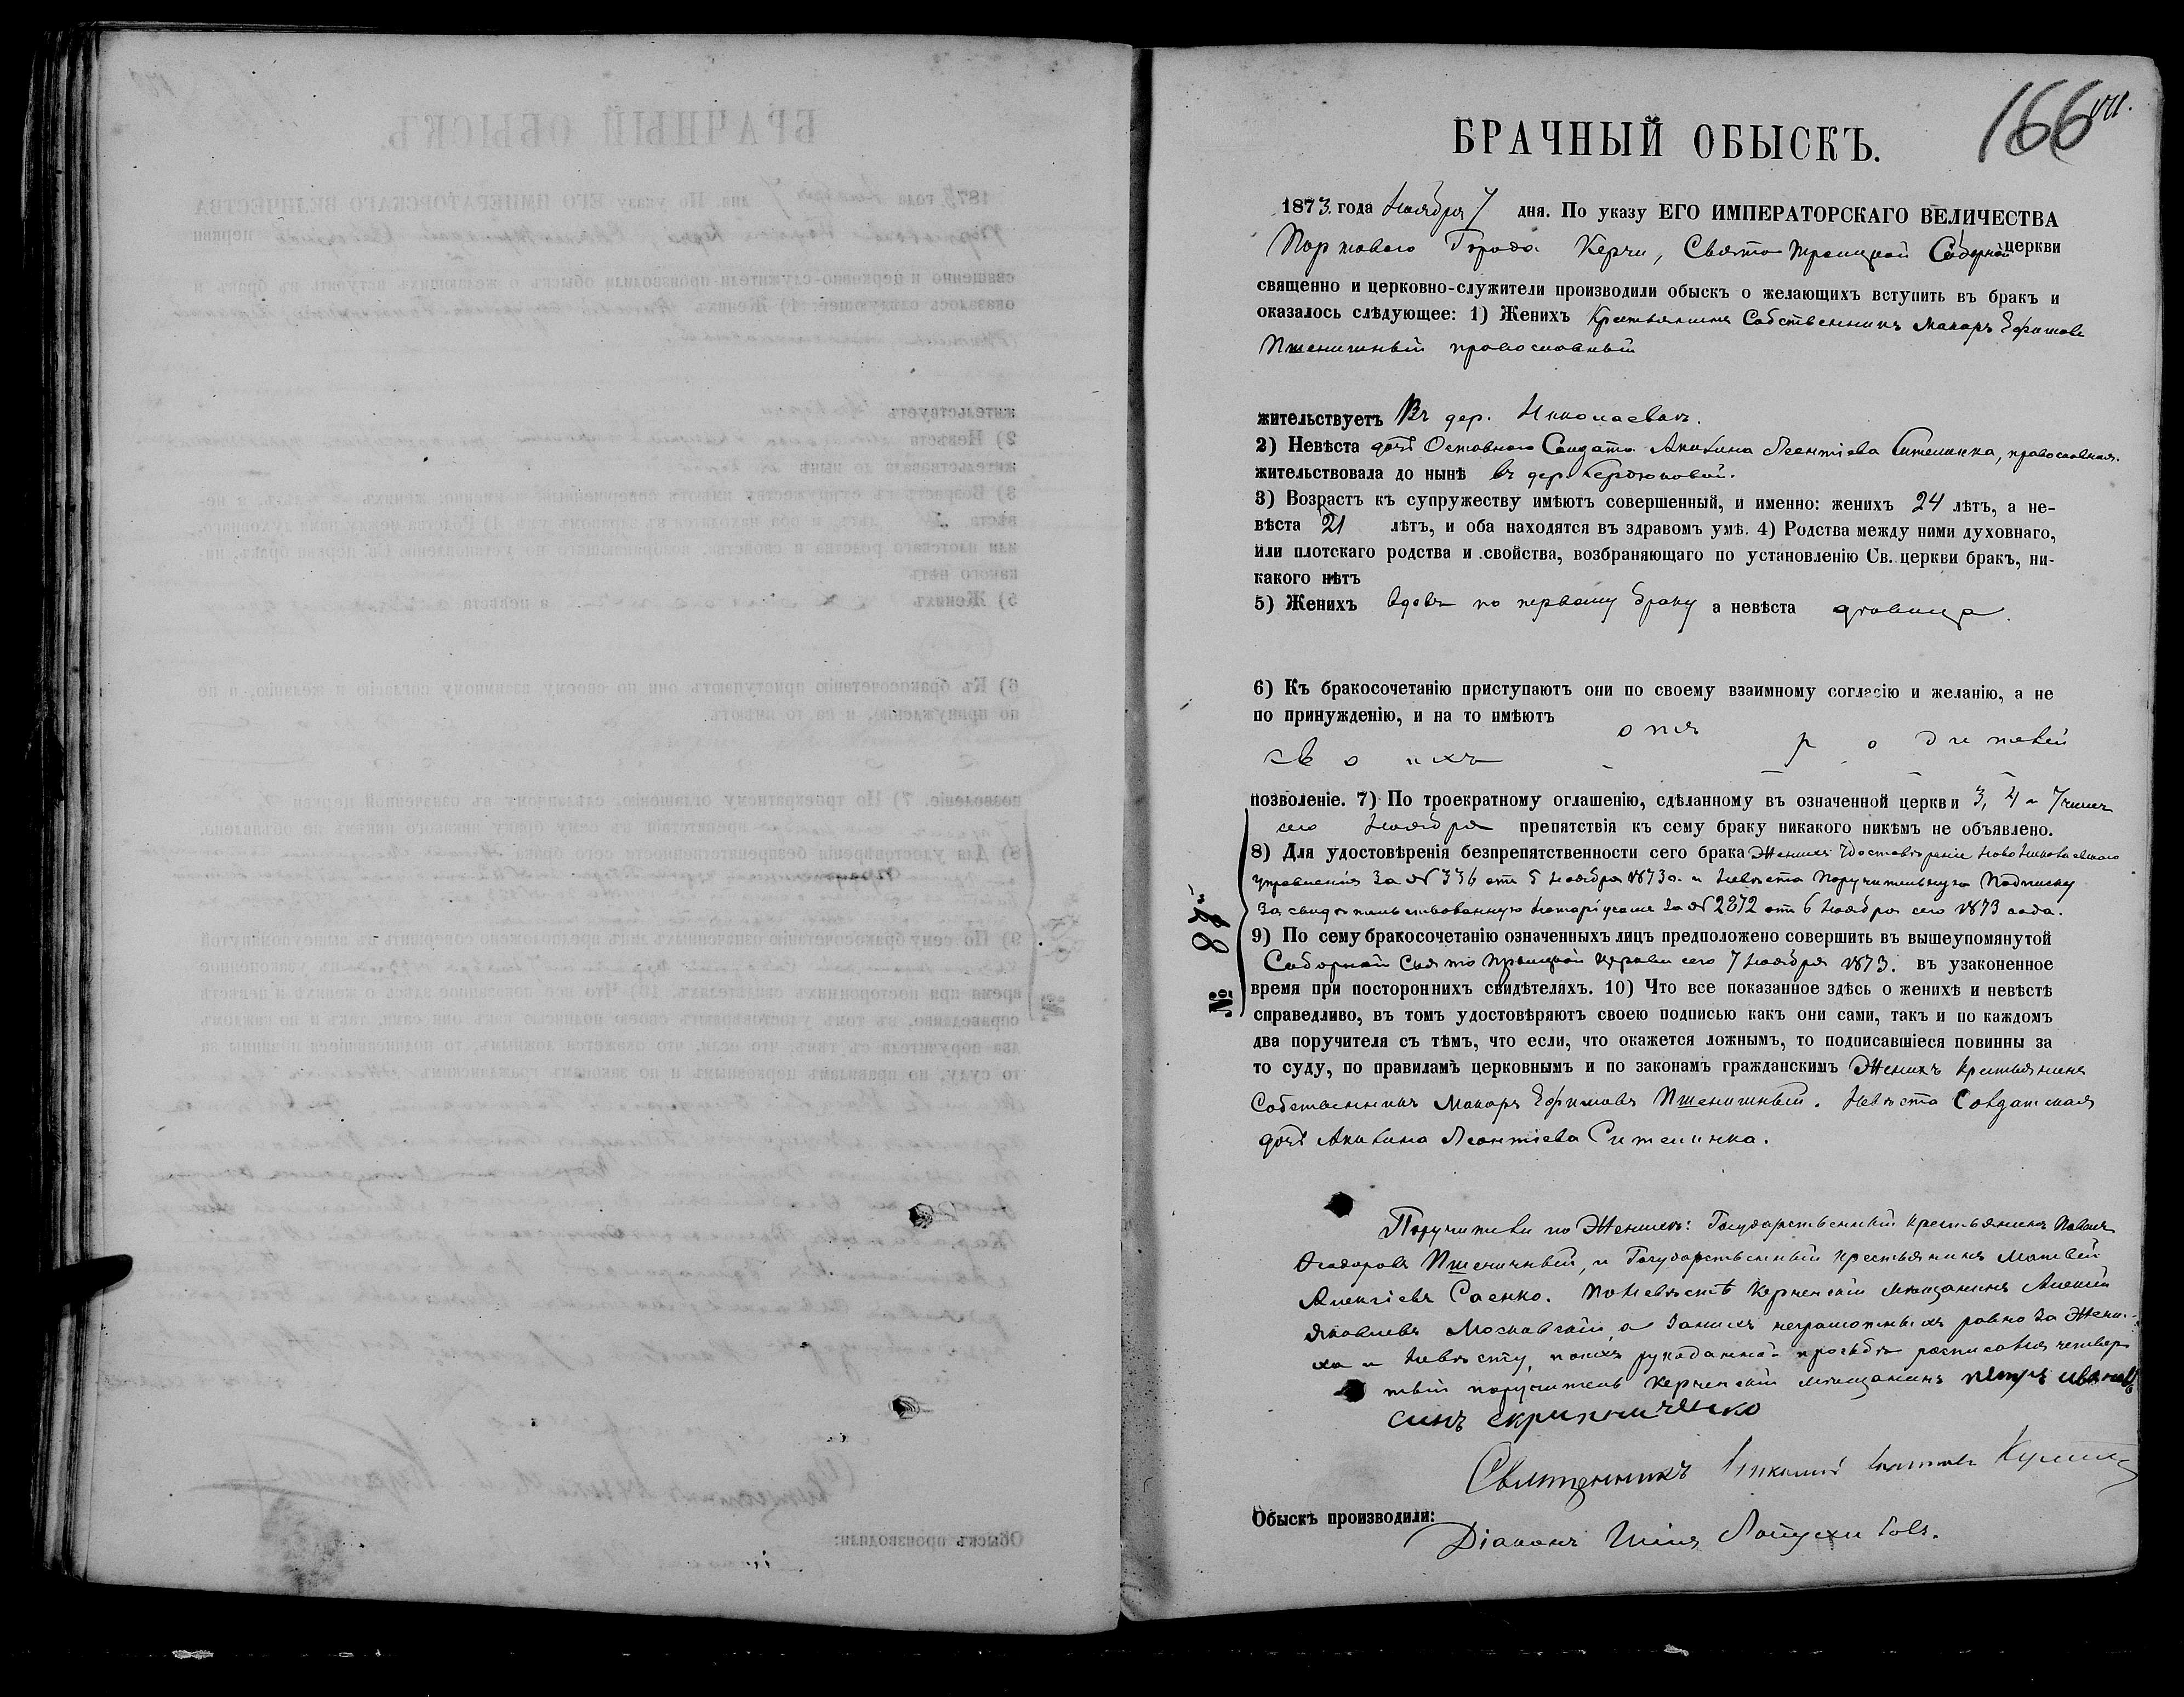 166
БРАЧНЫЙ ОБЫСКЪ.
1873. года Ноября 7 дня. По указу ЕГО ИМПЕРАТОРСКАГО ВЕЛИЧЕСТВА
Портоваго Города Керчи, Свято Троицкой Соборной церкви
священно и церковно-служители производили обыскъ о желающихъ вступить въ бракъ и
оказалось слѣдующее: 1) Женихъ Крестьянинъ Собственникъ Макаръ Ефимовъ
Пшеничный православный
жительствуетъ Въ дер. Николаевкѣ.
2) Невѣста дочь Солдата Акилина Леонтіева Сителинка, православная.
жительствовала до нынѣ въ дер.
3) Возрастъ къ супружеству имѣютъ совершенный, и именно: женихъ 24 лѣтъ, а не-
вѣста 21 лѣтъ, и оба находятся въ здравомъ умѣ. 4) Родства между ними духовнаго,
или плотскаго родства и свойства, возбраняющаго по установленію Св. церкви бракъ, ни-
какого нѣтъ
5) Женихъ вдовъ по первому браку а невѣста дѣвица.
6) Къ бракосочетанію приступаютъ они по своему взаимному согласію и желанію, а не
по принужденію, и на то имѣютъ отъ родителей
своихъ
позволеніе. 7) По троекратному оглашенію, сдѣланному въ означенной церкви 3, 4 и 7 чиселъ
сего Ноября препятствія къ сему браку никакого никѣмъ не объявлено.
8) Для удостовѣренія безпрепятственности сего брака Женихъ Удостовѣреніе Ново Николаевскаго
управленія за № 336 отъ 5 Ноября 1873 г. и Невѣста Поручительную Подписку
засвидѣтельствованную Нотаріусомъ за № 2872 отъ 6 Ноября сего 1873 года.
№ 88
9) По сему бракосочетанію означенныхъ лицъ предположено совершить въ вышеупомянутой
Соборной Свято Троицкой Церкви сего 7 Ноября 1873. въ узаконенное
время при постороннихъ свидѣтеляхъ. 10) Что все показанное здѣсь о женихѣ и невѣстѣ
справедливо, въ томъ удостовѣряютъ своею подписью какъ они сами, такъ и по каждомъ
два поручителя съ тѣмъ, что если, что окажется ложнымъ, то подписавшіеся повинны за
то суду, по правиламъ церковнымъ и по законамъ гражданскимъ Женихъ Крестьянинъ
Собственникъ Макаръ Ефимовъ Пшеничный. Невѣста Солдатская
дочь Акилина Леонтіева Сителинка.
Поручители по Женихѣ: Государственный крестьянинъ Павелъ
Ѳеодоровъ Пшеничный, и Государственный крестьянинъ Матвей
Алексіевъ Саенко. По Невѣстѣ Керченскій мѣщанинъ Алексій
Яковлевъ Московскій, а за нихъ неграмотныхъ равно за Жени-
ха и Невѣсту, по ихъ рукоданной просьбѣ росписался четвер-
тый поручитель Керченскій мѣщанинъ Петръ Ивановъ
синъ скрипниченко
Священникъ Николай
Обыскъ производили:
Діаконъ Илія Лопухи